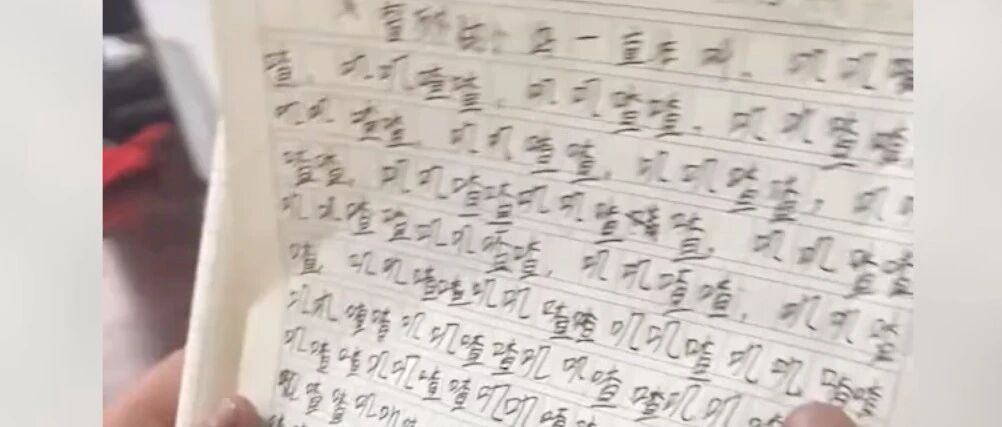 一直在叫，叽叽喳
喳，叽叽喳喳，叽叽喳喳，叽叽喳喳，
叽叽喳喳，叽叽喳喳，叽叽喳喳，叽叽
喳喳，叽叽喳喳叽叽喳喳，叽叽喳喳
叽叽喳喳叽叽喳喳，叽叽喳喳，叽叽喳
喳，叽叽喳喳叽叽喳喳叽叽喳叽叽喳喳
叽叽喳喳叽叽喳喳叽叽喳喳叽叽
叽喳喳叽叽喳喳叽叽喳
叽喳喳叽叽